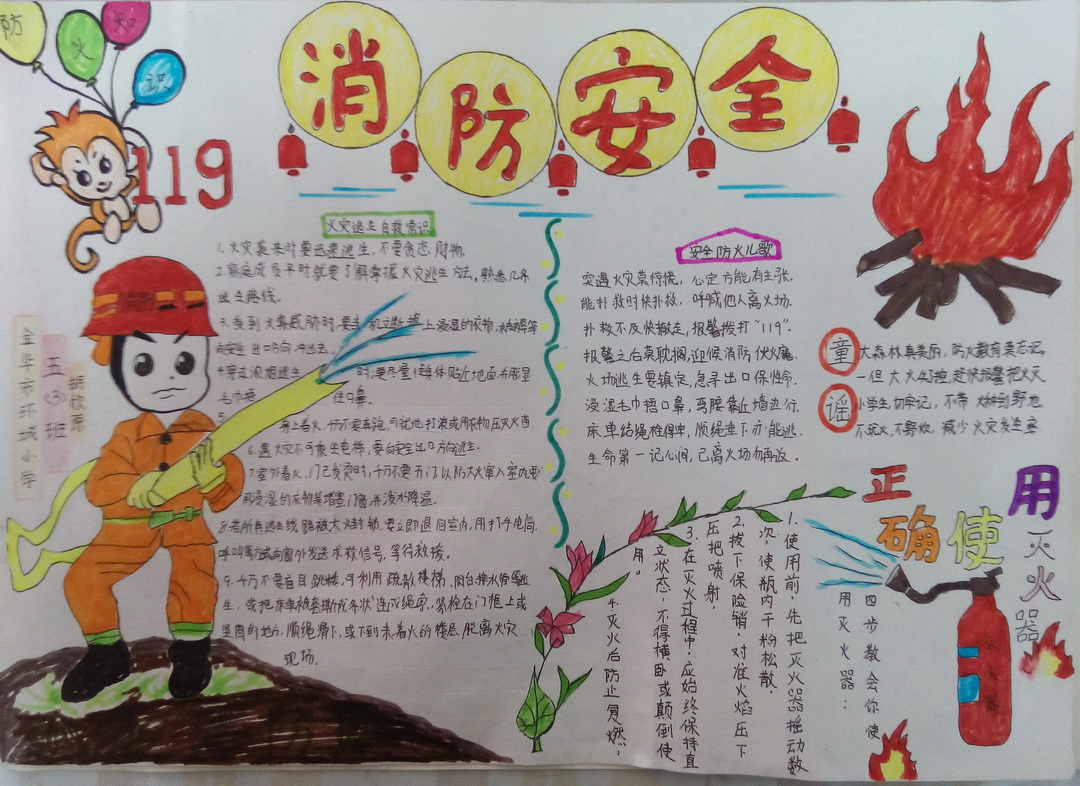 防
火
知
识
119
消防安全
金华市环城小学
五(3)班
胡欣原
火灾逃生自救常识
1.火灾袭来时要迅速逃生,不要贪恋财物。
2.家庭成员平时就要了解掌握火灾逃生方法,熟悉几条
逃生路线。
3.受到火势威胁时,要当机立断披上浸湿的衣物、被褥等
向安全出口方向冲出去。
4.穿过浓烟逃生时,要尽量使身体贴近地面,并用湿
毛巾捂住口鼻。
5.身上着火,千万不要奔跑,可就地打滚或用衣物压灭火苗
6.遇火灾不可乘坐电梯,要向安全出口方向逃生。
7.室外着火,门已发烫时,千万不要开门,以防大火窜入室内,要
用浸湿的衣物等堵塞门窗,并泼水降温。
8.若所有逃生线路被大火封锁,要立即退回室内,用打手电筒、
呼叫等方式向窗外发送求救信号,等待救援。
9.千万不要盲目跳楼,可利用疏散楼梯、阳台、排水管等逃
生,或把床单、被套撕成条状连成绳索,紧拴在门框上或
坚固的地方,顺绳滑下,或下到未着火的楼层,脱离火灾
现场。
安全防火儿歌
突遇火灾莫惊慌,心定方能有主张。
能扑救时快扑救,呼喊他人离火场。
扑救不及快撤走,报警拨打“119”。
报警之后莫耽搁,迎候消防伏火魔。
火场逃生要镇定,急寻出口保性命。
浸湿毛巾捂口鼻,弯腰靠近墙边行。
床单结绳拴得牢,顺绳垂下亦能逃。
生命第一记心间,已离火场勿再返。
童谣
大森林真美丽,防火教育莫忘记
一但大火,赶快报警把火灭
小学生切牢记,不带火种到野地
不玩火,不野炊,减少火灾发生率
正确使用灭火器
四步教会你使
用灭火器:
1.使用前,先把灭火器摇动数
次,使瓶内干粉松散,
2.拔下保险销,对准火焰压下
压把喷射,
3.在灭火过程中,应始终保持直
立状态,不得横卧或颠倒使
用。
4.灭火后防止复燃,
灭火器